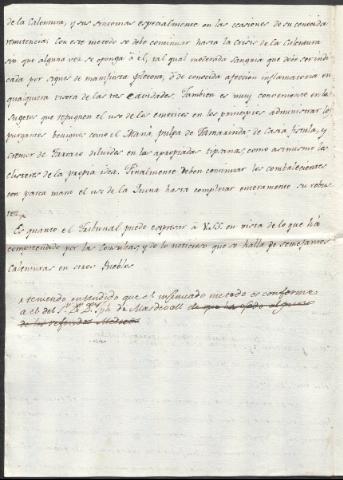 de la Calentura, y sus sincomas especialmente en las ocasiones de su conocida
remitencia. Con este metodo se debe continuar hasta la Crisis de la Calentura
sin que alguna vez se oponga à él, tal qual moderada sangria que deve ser indi
cada por signos de manifiesta pletora, ò de conocida afeccion inflamatoria en
qualquiera viscera de las tres cavidades. Tambien es muy conveniente en los
sugetos que repugnen el uso de los emeticos en los principios administrar los
purgantes benignos como el Maná pulpa de Tamarindos, de Casia fistula, y
cremor de Tartaro diluidos en las apropiadas tipsanas, como asimismo los
clisteres de la propia idea. Finalmente deben continuar los combalecientes
con parca mano el uso de la Quina hasta completar enteramente su robus
tez.
Es quanto el Tribunal puede exponer à V.SS. en vista de lo que ha
comprendido por las Consultas, y de lo noticioso que se halla de semejantes
Calenturas en otros Pueblos
y teniendo entendido que el insinuado metodo es conforme
a el del Sr. Dr. Dn. Jph de Masdevall de que ha usado alguno
de los referidos Medicos